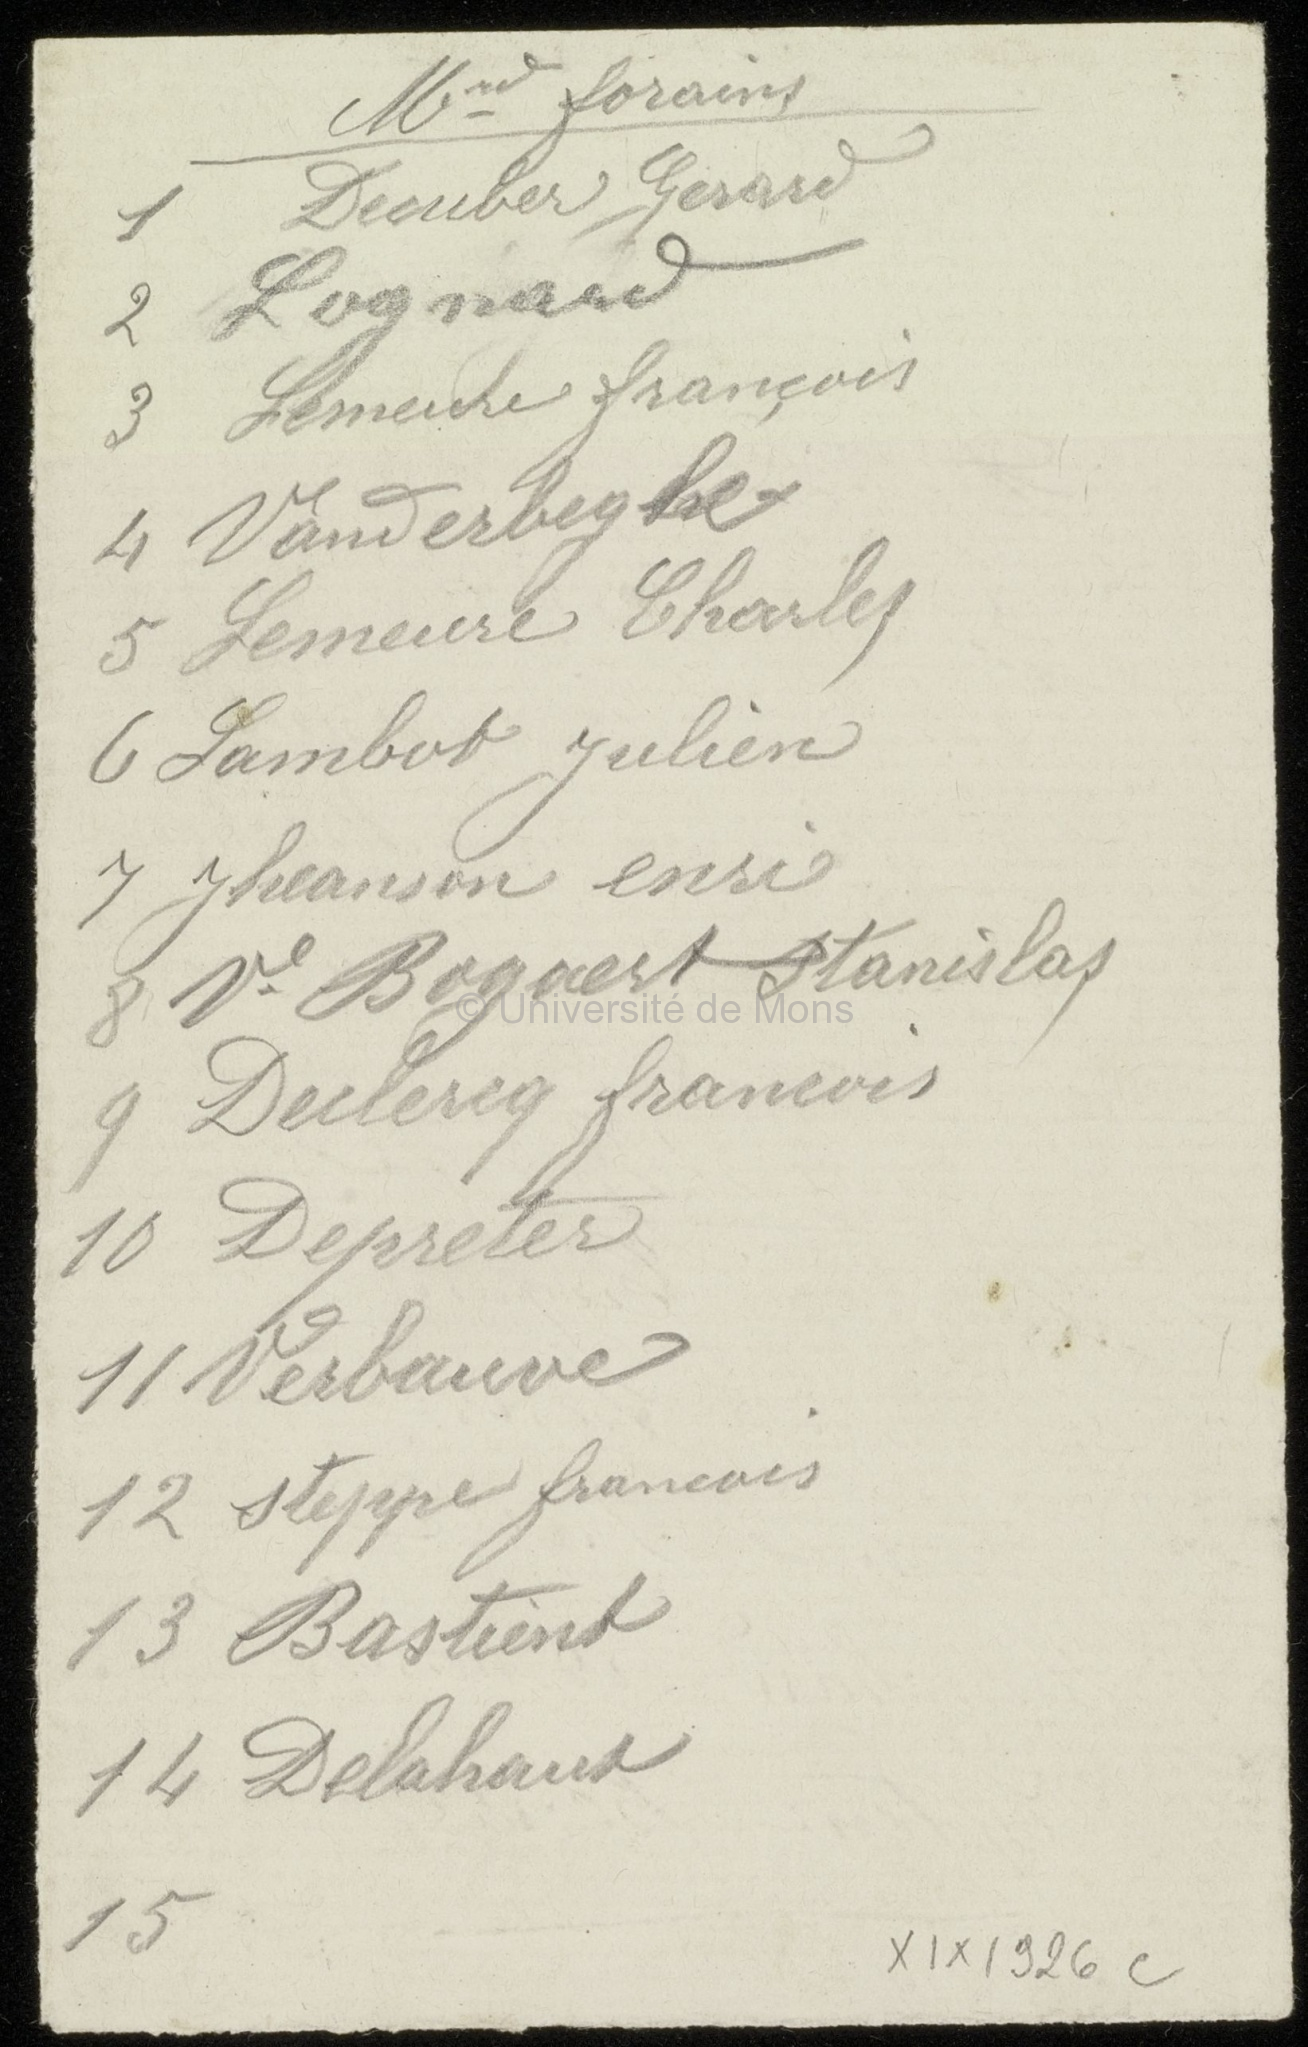 Mnd forains
1 Decuber Gerard
2 Lognard
3 Lemeute françois
4 Vanderbeghe
5 Lemeure Charles
6 Lambot Julien
7 Jheanson enri
8 Ve Bogaert Stanislas
© Université de Mons
9 Declercq francois
10 Depreter
11 Verbauve
12 steppe francois
13 Bastient
14 Delahaut
15
XIX 1926 c